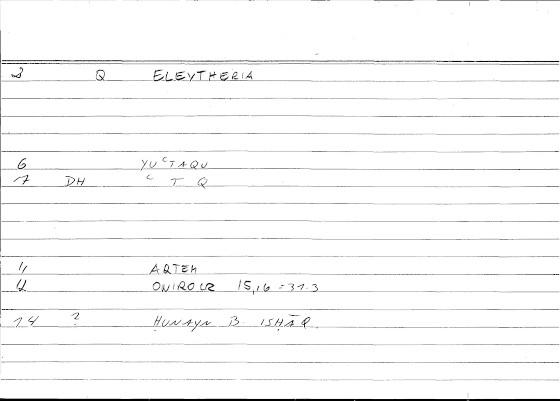 3 Q ELEYTHERIA
6 YUʿTAQU
7 DH ʿ T Q
11 ARTEM
12 ONIROCR 15,16 = 31.3
14 ? ḤUNAYN B. ISḤĀQ.